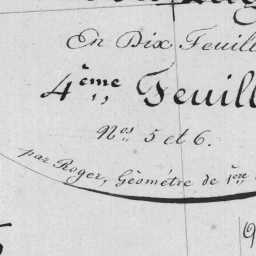 En Dix Feuill
4ème Feuill
Nos 5 et 6.
par Roger, Géométre de 1ère